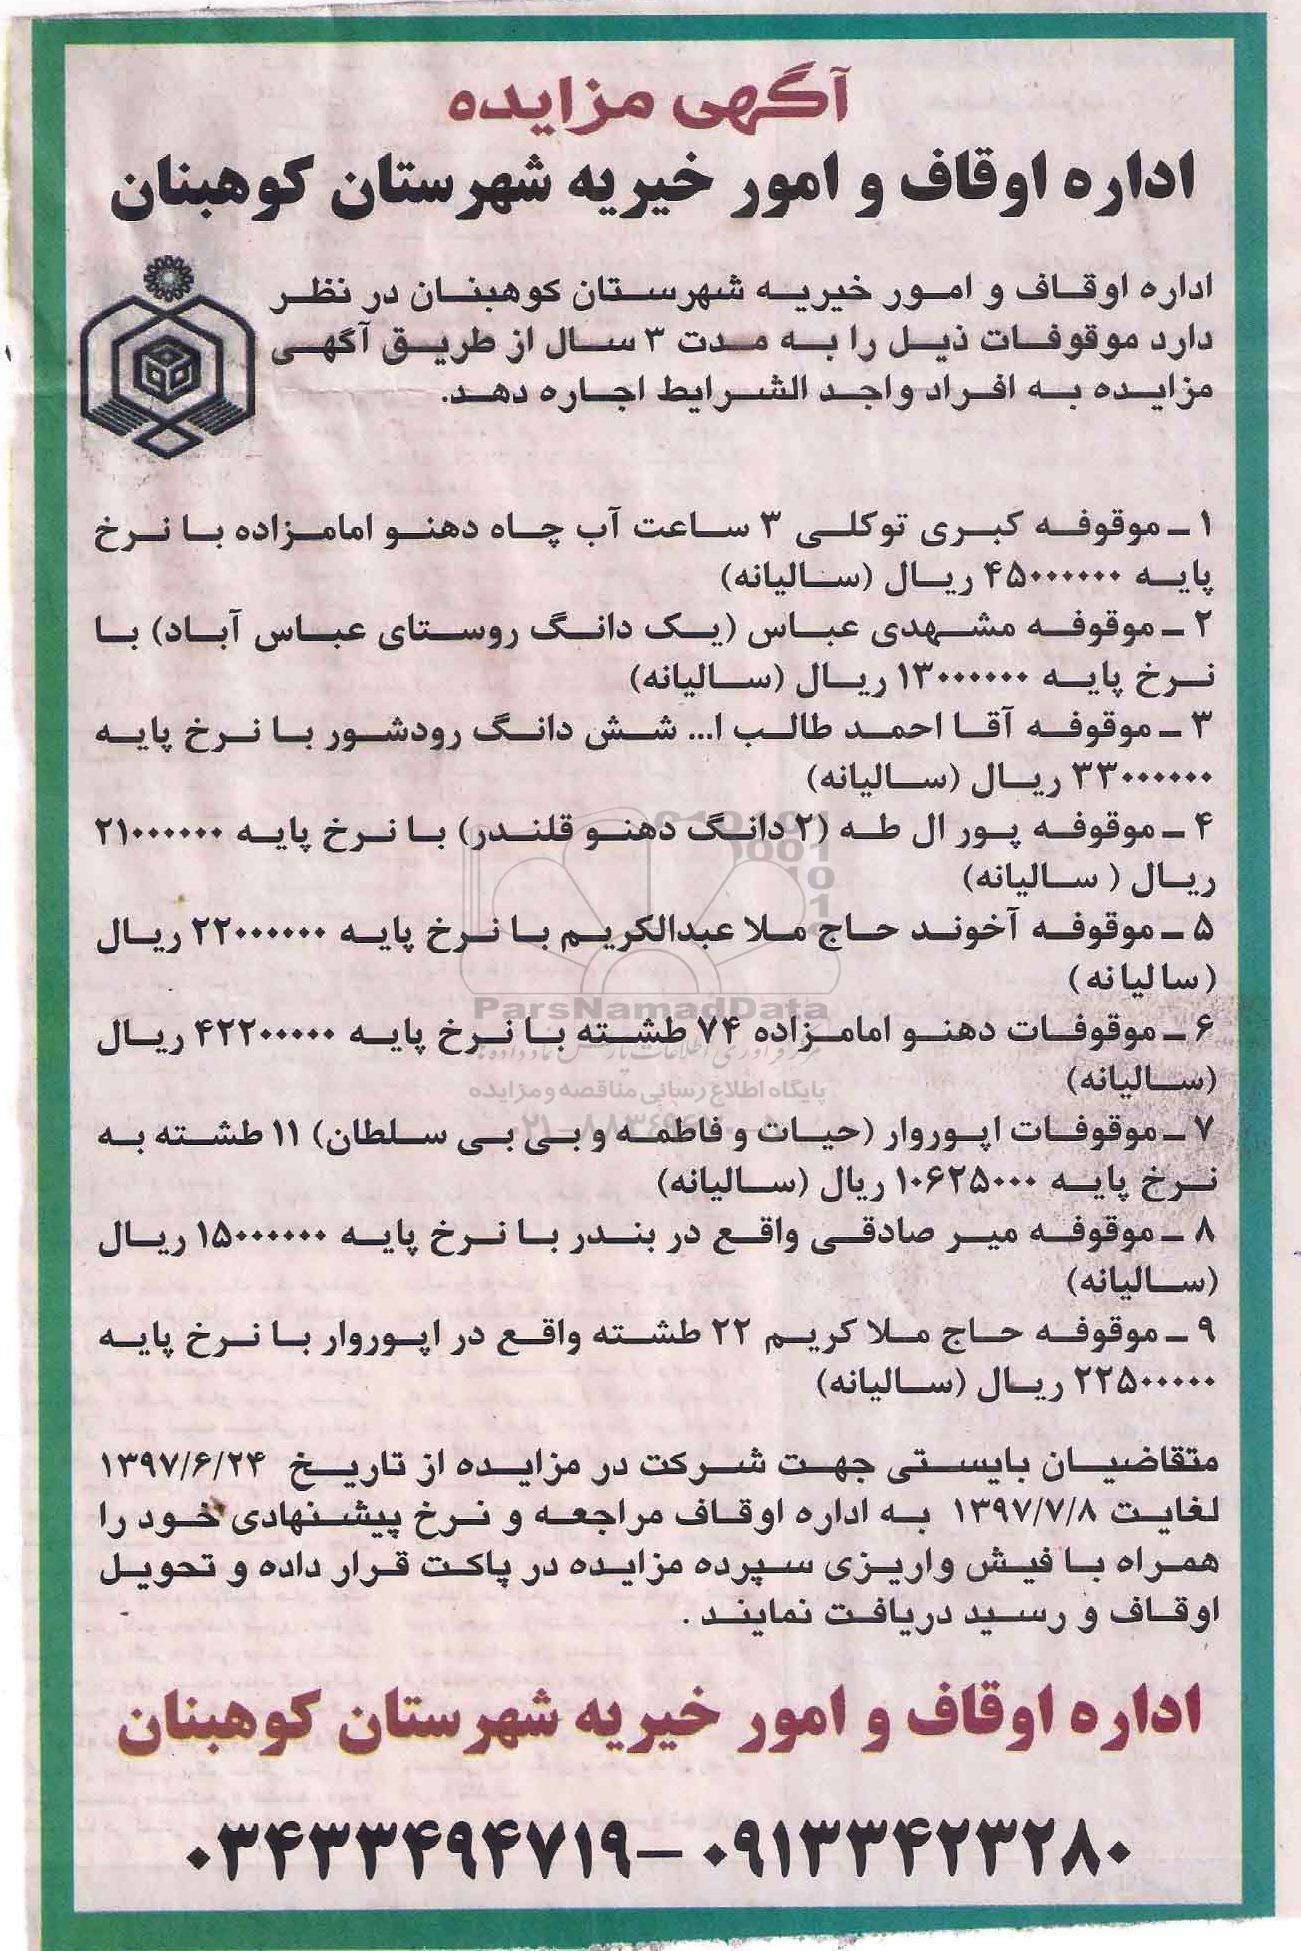 آگهی مزایده
اداره اوقاف و امور خیریه شهرستان کوهبنان
اداره اوقاف و امور خیریه شهرستان کوهبنان در نظر
دارد موقوفات ذیل را به مدت ۳ سال از طریق آگهی
مزایده به افراد واجد الشرایط اجاره دهد.
۱ ـ موقوفه کبری توکلی ۳ ساعت آب چاه دهنو امامزاده با نرخ
پایه ۴۵۰۰۰۰۰۰ ریال (سالیانه)
۲ ـ موقوفه مشهدی عباس (یک دانگ روستای عباس آباد) با
نرخ پایه ۱۳۰۰۰۰۰۰ ریال (سالیانه)
۳ ـ موقوفه آقا احمد طالب ا... شش دانگ رودشور با نرخ پایه
۳۳۰۰۰۰۰۰ ریال (سالیانه)
۴ ـ موقوفه پور ال طه (۲ دانگ دهنو قلندر) با نرخ پایه ۲۱۰۰۰۰۰۰
ریال ( سالیانه)
۵ ـ موقوفه آخوند حاج ملا عبدالکریم با نرخ پایه ۲۲۰۰۰۰۰۰ ریال
(سالیانه)
ParsNamadData
۶ ـ موقوفات دهنو امامزاده ۷۴ طشته با نرخ پایه ۴۲۲۰۰۰۰۰ ریال
(سالیانه)
پایگاه اطلاع رسانی مناقصه و مزایده
۷ ـ موقوفات اپوروار (حیات و فاطمه و بی بی سلطان) ۱۱ طشته به
نرخ پایه ۱۰۶۲۵۰۰۰ ریال (سالیانه)
۸ ـ موقوفه میر صادقی واقع در بندر با نرخ پایه ۱۵۰۰۰۰۰۰ ریال
(سالیانه)
۹ ـ موقوفه حاج ملا کریم ۲۲ طشته واقع در اپوروار با نرخ پایه
۲۲۵۰۰۰۰۰ ریال (سالیانه)
متقاضیان بایستی جهت شرکت در مزایده از تاریخ ۱۳۹۷/۶/۲۴
لغایت ۱۳۹۷/۷/۸ به اداره اوقاف مراجعه و نرخ پیشنهادی خود را
همراه با فیش واریزی سپرده مزایده در پاکت قرار داده و تحویل
اوقاف و رسید دریافت نمایند .
اداره اوقاف و امور خیریه شهرستان کوهبنان
۰۳۴۳۳۴۹۴۷۱۹ – ۰۹۱۳۳۴۲۳۲۸۰